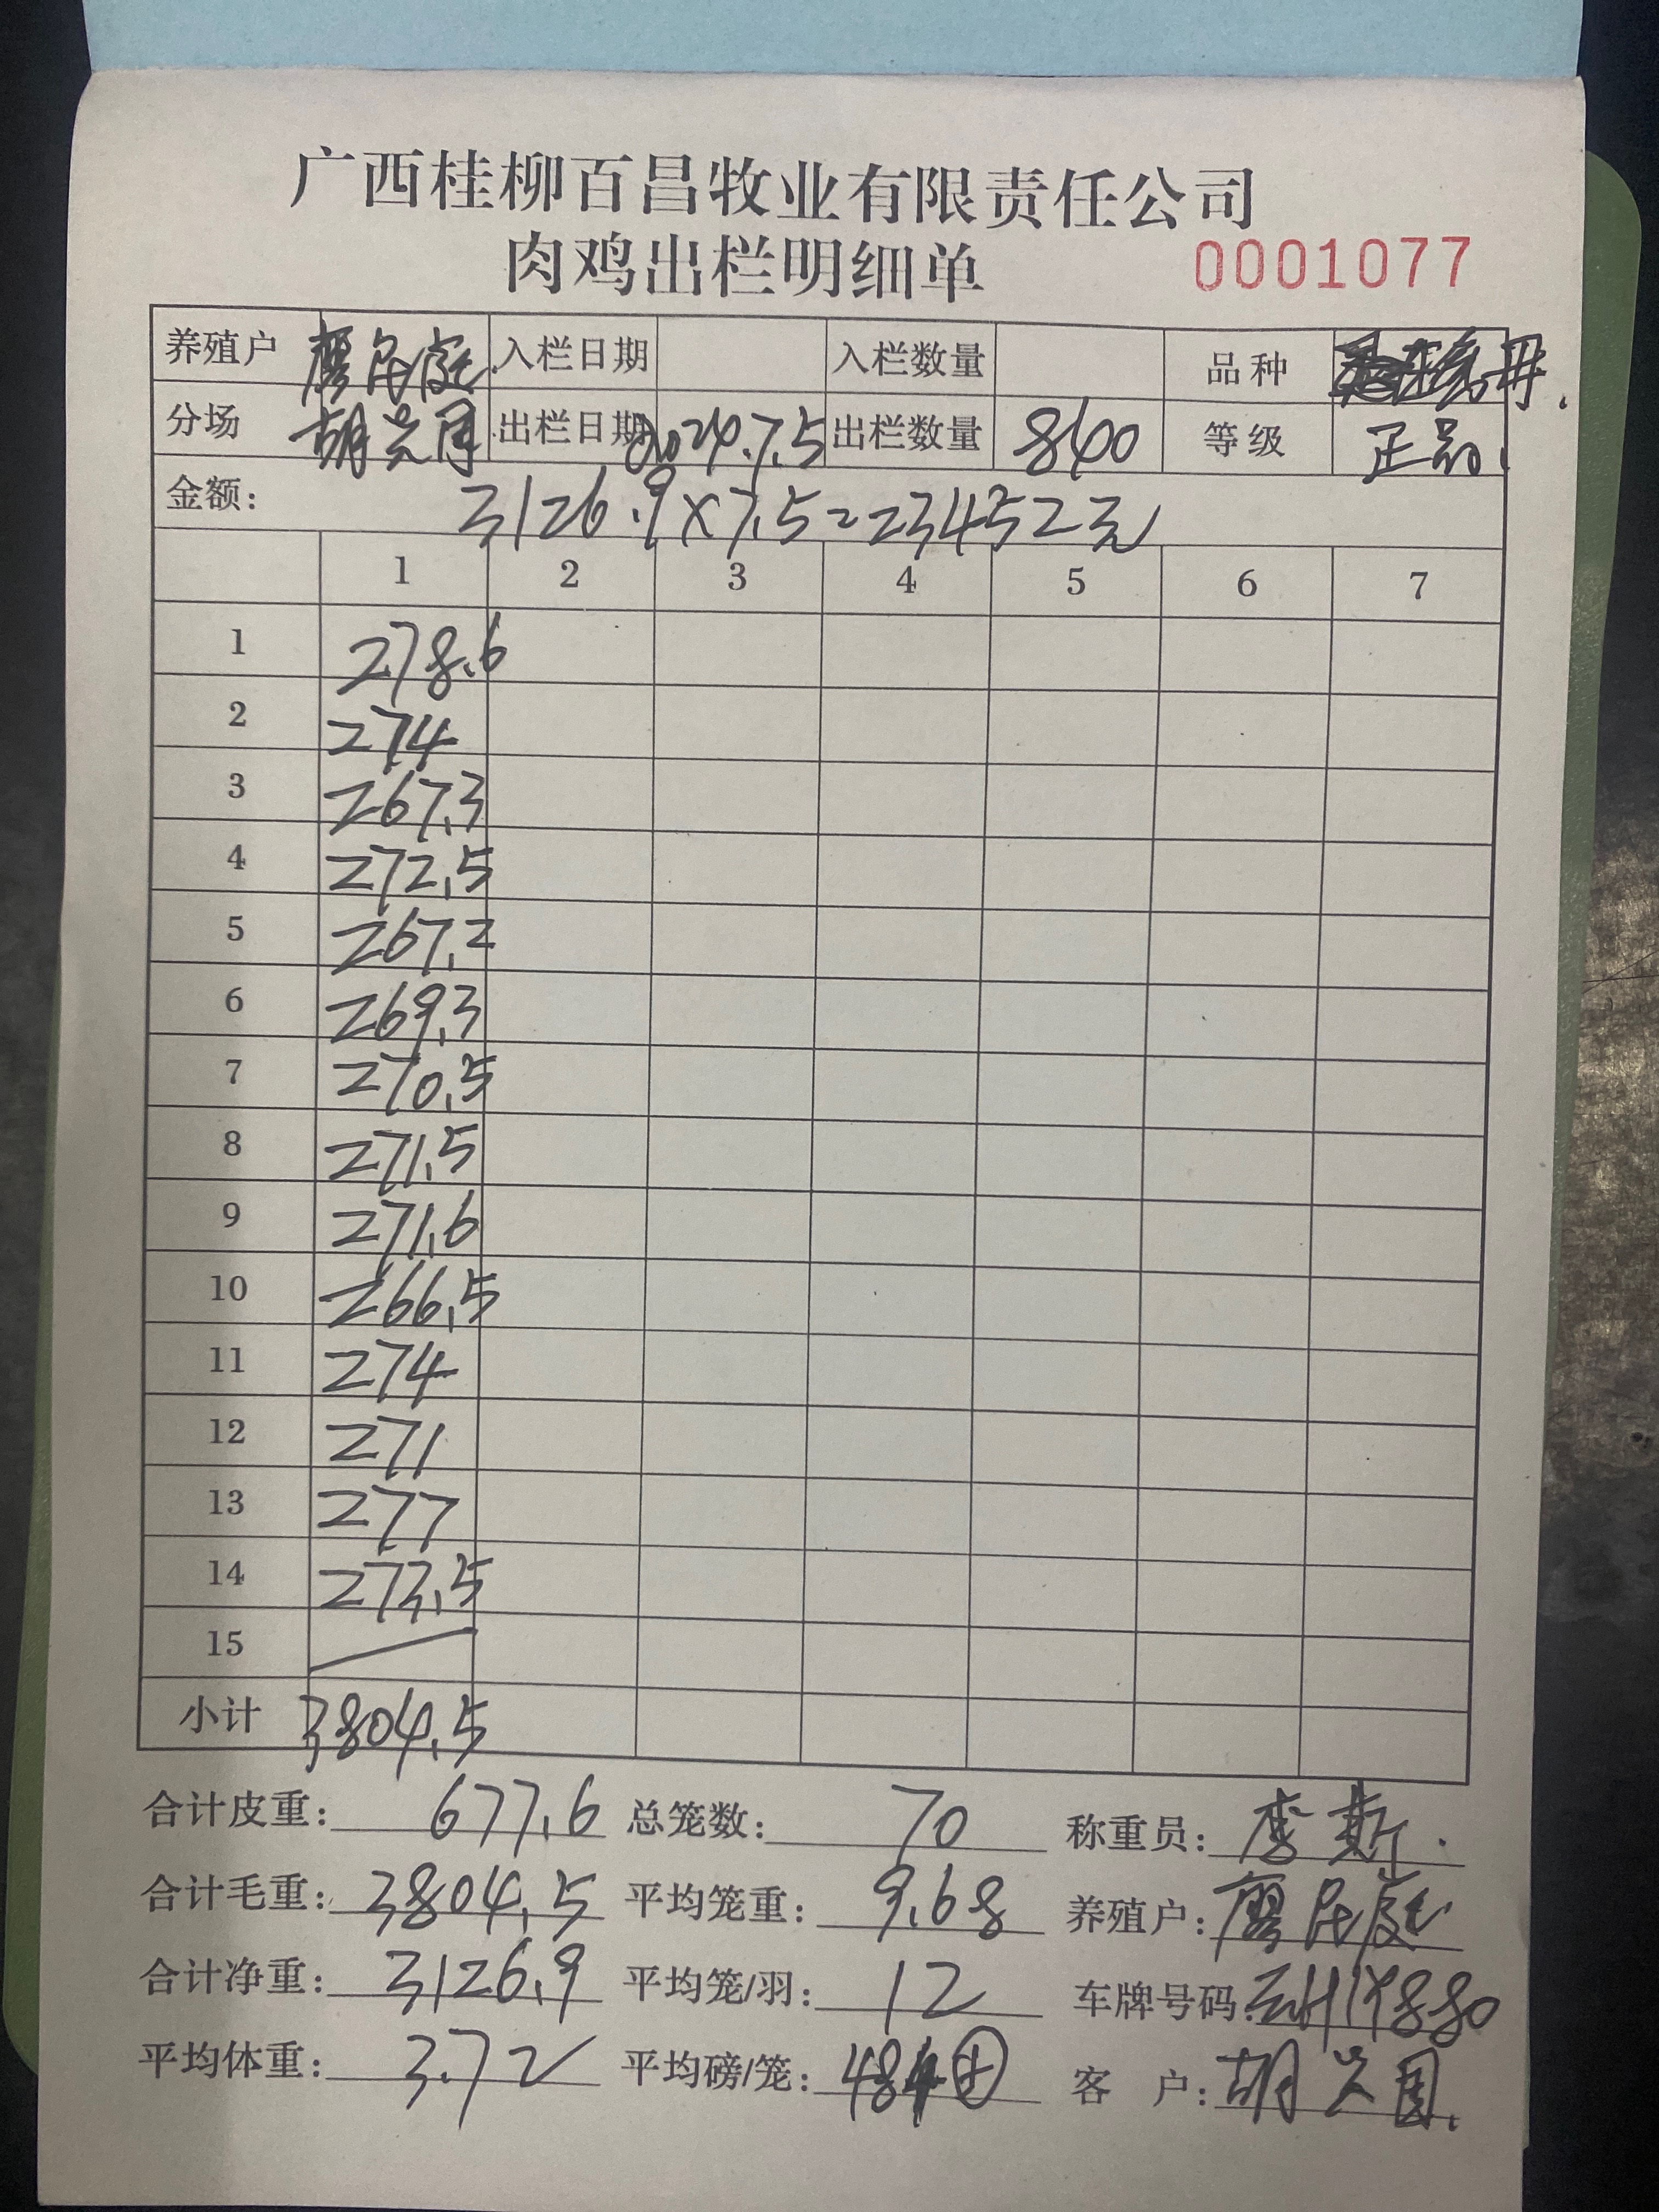 广西桂柳百昌牧业有限责任公司
肉鸡出栏明细单 0001077
养殖户 廖民庭 入栏日期 入栏数量 品种
分场 胡兴国 出栏日期 2024.7.5 出栏数量 840 等级 正品.
金额: 3126.9×7.5=23452元
1 2 3 4 5 6 7
1 278.6
2 274
3 267.3
4 272.5
5 267.2
6 269.3
7 270.5
8 271.5
9 271.6
10 266.5
11 274
12 271
13 277
14 273.5
15
小计 3804.5
合计皮重: 677.6 总笼数: 70 称重员: 李斯.
合计毛重: 3804.5 平均笼重: 9.68 养殖户: 廖民庭
合计净重: 3126.9 平均笼/羽: 12 车牌号码:
平均体重: 3.72 平均磅/笼: 客 户: 胡兴国.